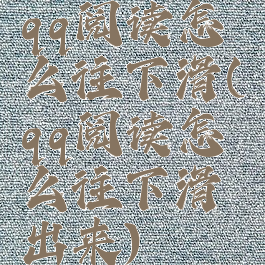 qq阅读怎
么往下滑(
qq阅读怎
么往下滑
出来)